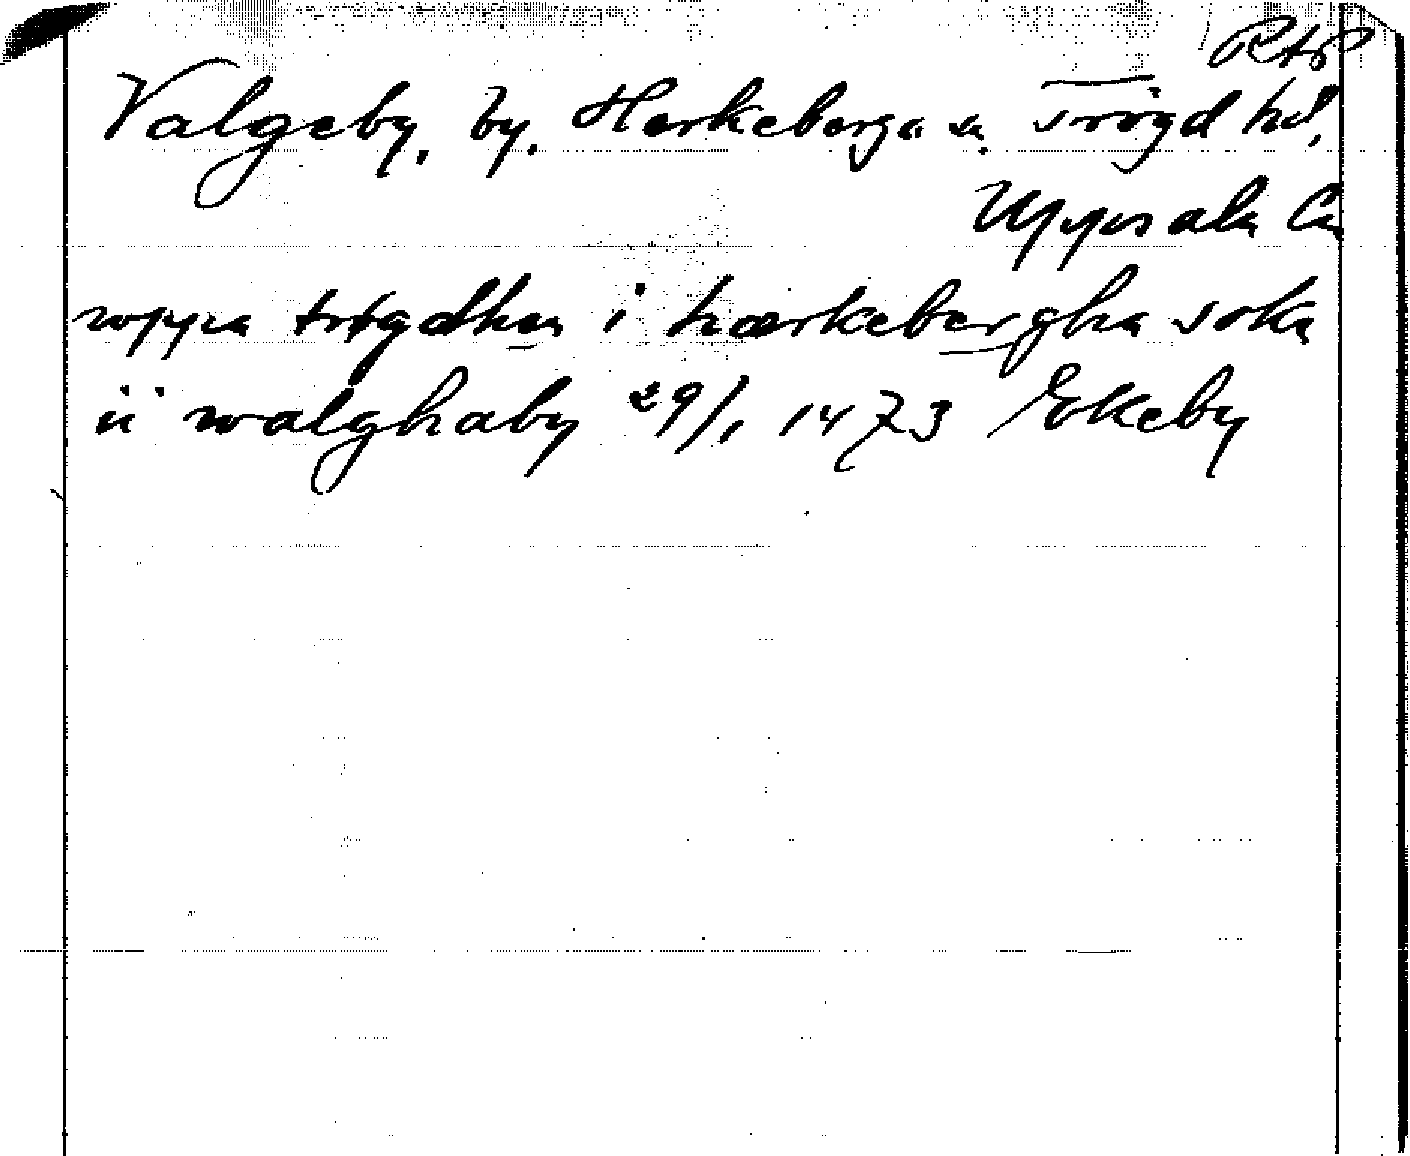 Valgeby, by, Härkeberga sn. Trögd hd,
Uppsala län
wppa trøgdhen i hærkebergha sokn
ii walghaby 29/1 1473 Ekeby